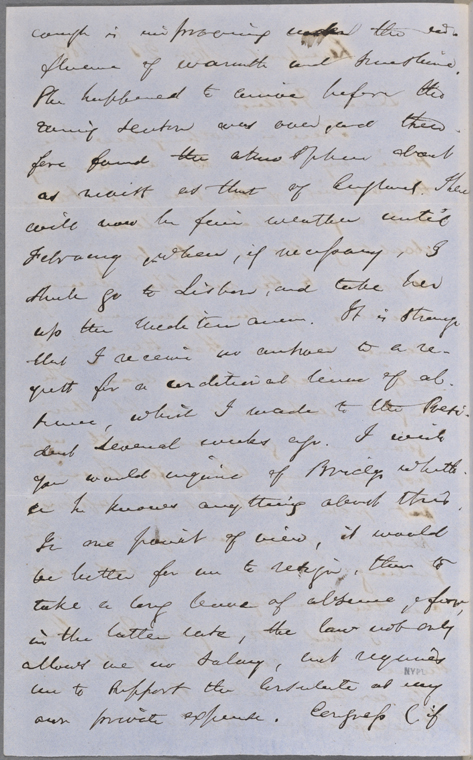 cough is improving under the in-
fluence of warmth and sunshine.
She happened to arrive before the
rainy season was over, and there-
fore found the atmosphere about
as moist as that of England. There
will now be fair weather until
February, when, if necessary, I
shall go to Lisbon, and take her
up the Mediterranean. It is strange
that I receive no answer to a re-
quest for a conditional leave of ab-
sence, which I made to the Presi-
dent several weeks ago. I wish
you would inquire of Bridge wheth-
er he knows anything about this.
In one point of view, it would
be better for me to resign, than to
take a long leave of absence; for,
in the latter case, the law not only
allows me no salary, but requires
me to support the Consulate at my
own private expense. Congress (if
NYPL